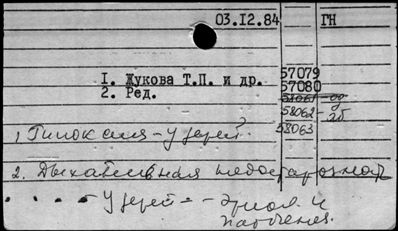 03.12.84 ГН
1. Жукова Т.П. и др. 57079
2. Ред. 57080
58061 - од
58062 - эб
58063
1. Гипоксия - у детей.
2. Дыхательная недостаточность
- у детей - - этиол. и
патогенез.